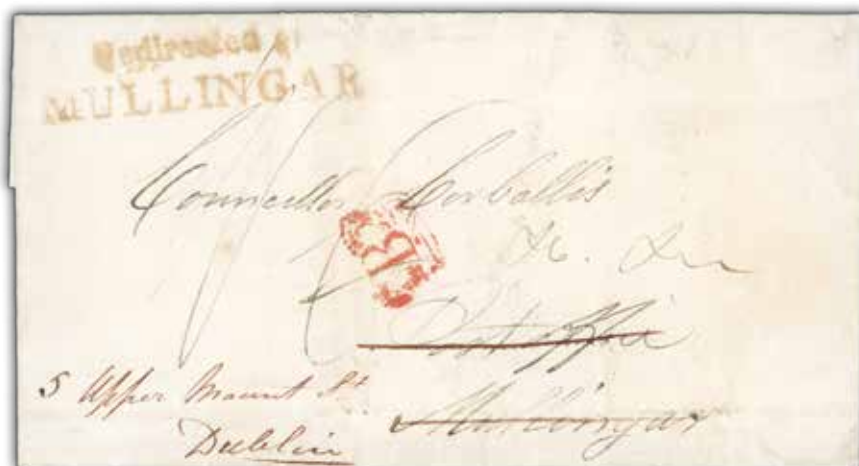 Redirected at
MULLINGAR
Councellor Corballis
&c. &c
Post Office
Mullingar
5 Upper Mount St
Dublin